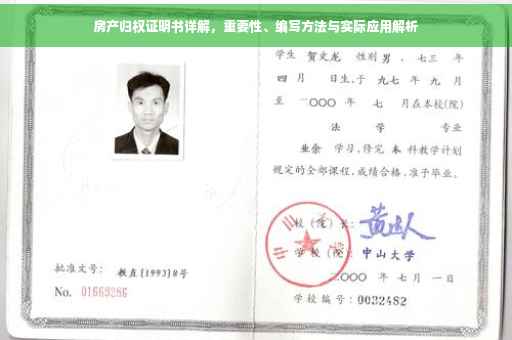 房产归权证明书详解，重要性、编写方法与实际应用解析
学生 贺文龙 性别 男，七三 年
四 月 日生，于 九七 年 九 月
至 二〇〇〇 年 七 月在本校(院)
法 学 专业
业余 学习，修完 本 科教学计划
规定的全部课程，成绩合格，准予毕业。
校（院）长：
学 校（院）：中山大学
二〇〇〇 年 七 月 一 日
学校编号：0032482
批准文号：教直(1993)8号
No. 01669286